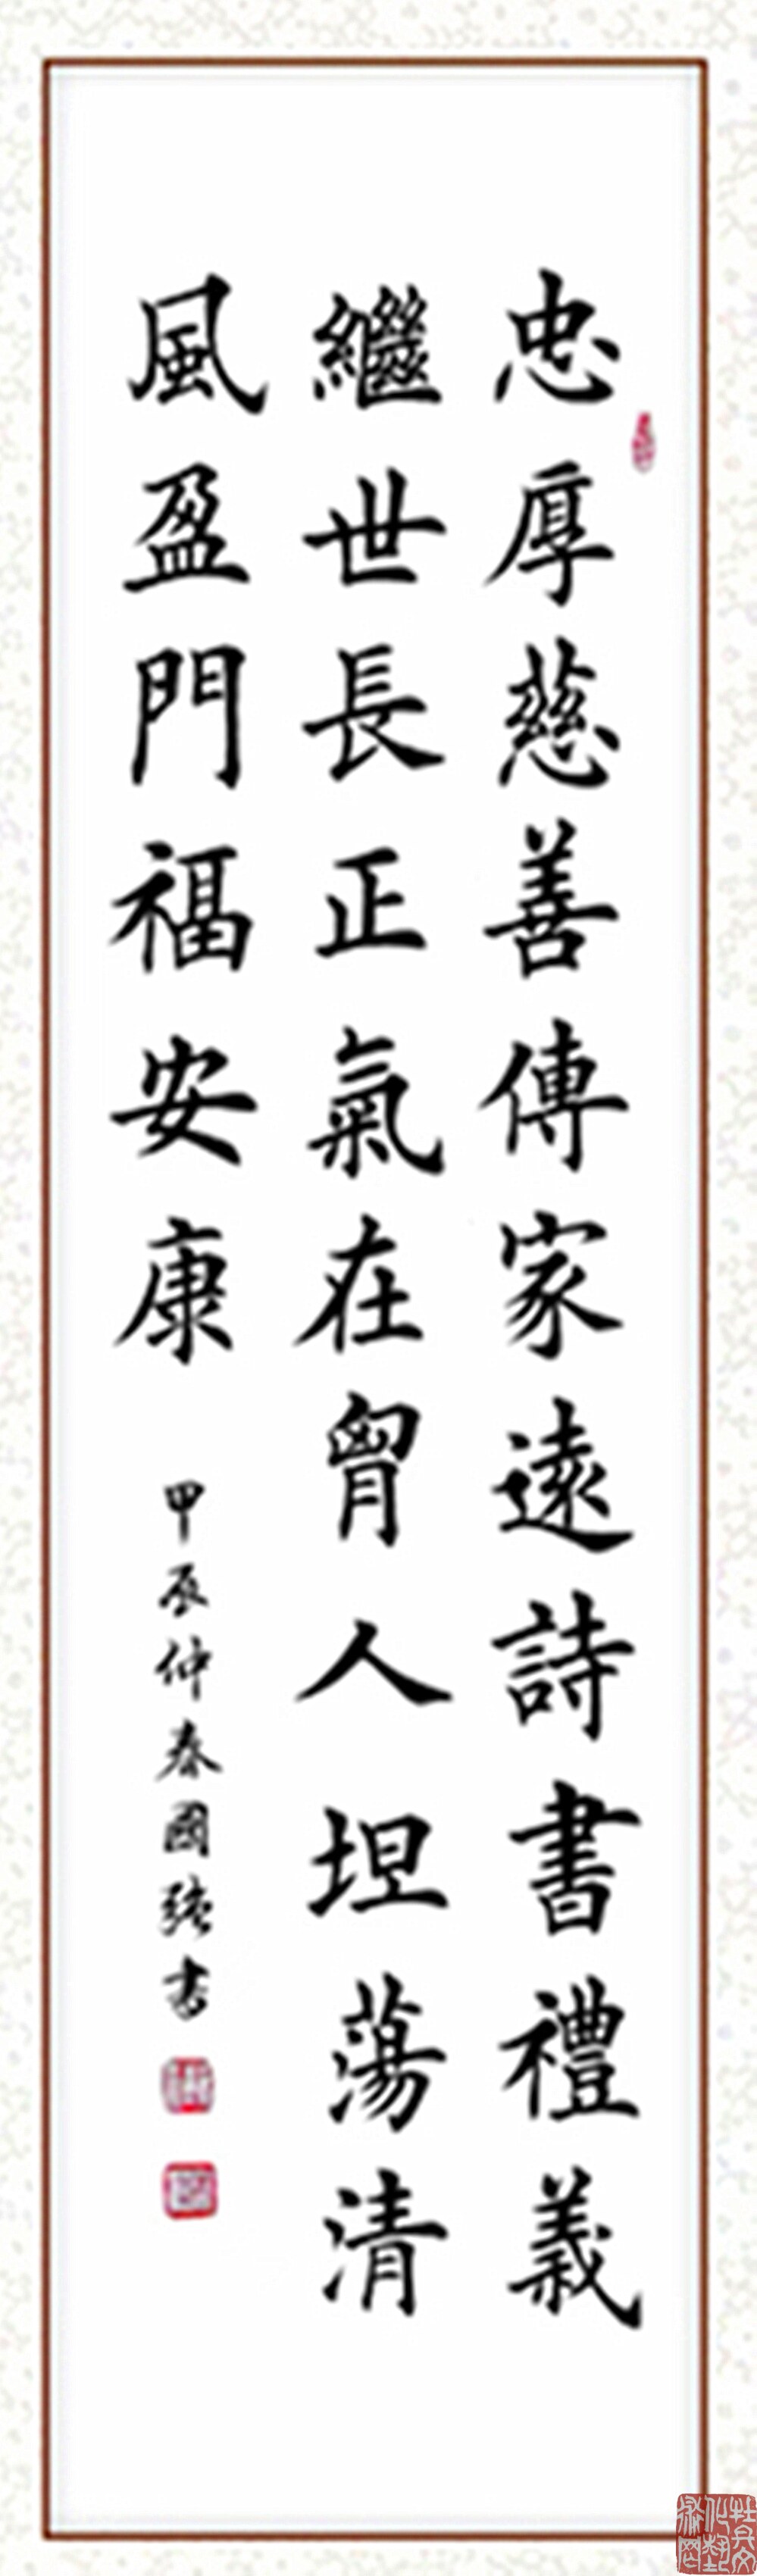 忠厚慈善傳家遠詩書禮義
繼世長正氣在胷人坦蕩清
風盈門福安康
甲辰仲春國強書